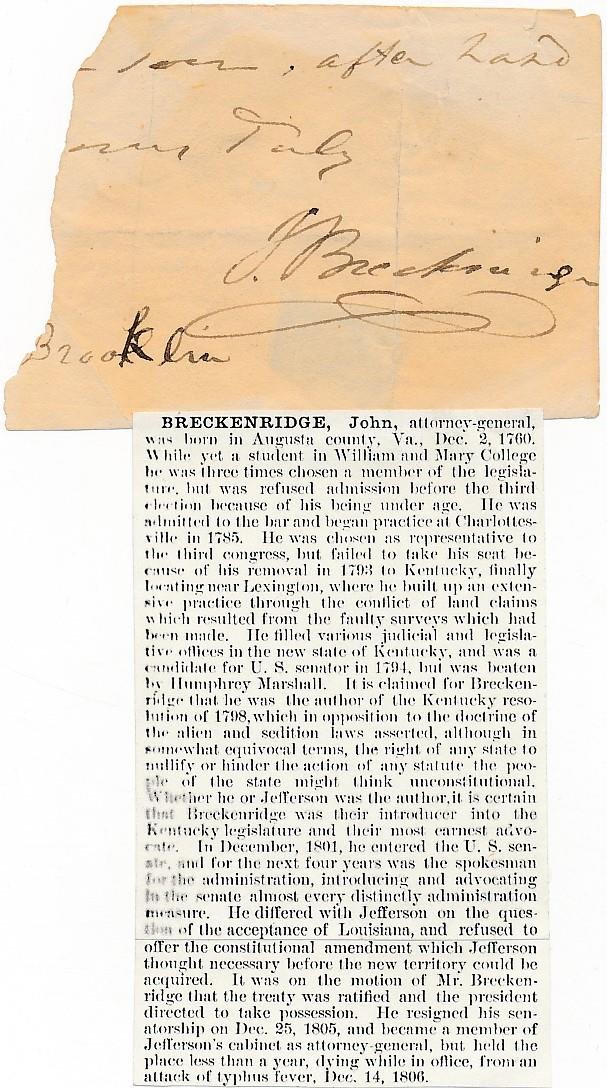 soon, after hand
Truly
J. Breckinrige
Brooklin
BRECKENRIDGE, John, attorney-general,
was born in Augusta county, Va., Dec. 2, 1760.
While yet a student in William and Mary College
he was three times chosen a member of the legisla-
ture, but was refused admission before the third
election because of his being under age. He was
admitted to the bar and began practice at Charlottes-
ville in 1785. He was chosen as representative to
the third congress, but failed to take his seat be-
cause of his removal in 1793 to Kentucky, finally
locating near Lexington, where he built up an exten-
sive practice through the conflict of land claims
which resulted from the faulty surveys which had
been made. He filled various judicial and legisla-
tive offices in the new state of Kentucky, and was a
candidate for U. S. senator in 1794, but was beaten
by Humphrey Marshall. It is claimed for Brecken-
ridge that he was the author of the Kentucky reso-
lution of 1798, which in opposition to the doctrine of
the alien and sedition laws asserted, although in
somewhat equivocal terms, the right of any state to
nullify or hinder the action of any statute the peo-
ple of the state might think unconstitutional.
Whether he or Jefferson was the author, it is certain
that Breckenridge was their introducer into the
Kentucky legislature and their most earnest advo-
cate. In December, 1801, he entered the U. S. sen-
ate, and for the next four years was the spokesman
for the administration, introducing and advocating
in the senate almost every distinctly administration
measure. He differed with Jefferson on the ques-
tion of the acceptance of Louisiana, and refused to
offer the constitutional amendment which Jefferson
thought necessary before the new territory could be
acquired. It was on the motion of Mr. Brecken-
ridge that the treaty was ratified and the president
directed to take possession. He resigned his sen-
atorship on Dec. 25, 1805, and became a member of
Jefferson's cabinet as attorney-general, but held the
place less than a year, dying while in office, from an
attack of typhus fever, Dec. 14, 1806.